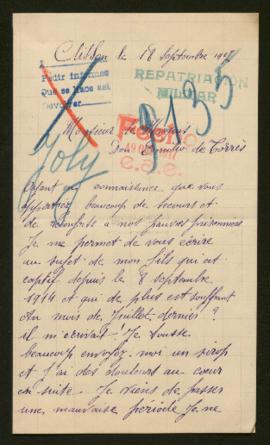 Clisson le 18 Septembre 1917
Pedir informes
Que se hace así
Devolver
REPATRIACION
MILITAR
9135
Joly
Monsieur le Marquis
Don Emilio de Torrès
Ayant eu connaissance que vous
apportiez beaucoup de secours et
de réconforts à nos pauvres prisonniers
Je me permet de vous écrire
au sujet de mon fils qui est
captif depuis le 8 septembre
1914 et qui de plus est souffrant
Au mois de Juillet dernier
il m'écrivait. Je tousse
beaucoup envoyez moi un sirop
et j'ai des douleurs au cœur
en suite. Je viens de passer
une mauvaise période je ne